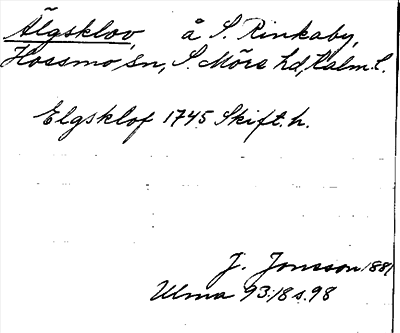 Älgsklov, å S. Rinkaby,
Hossmo sn, S. Möre hd, Kalm. l.
Elgsklof 1745 Skift. h.
J. Jonsson 1881
Ulma 93:18 s. 98